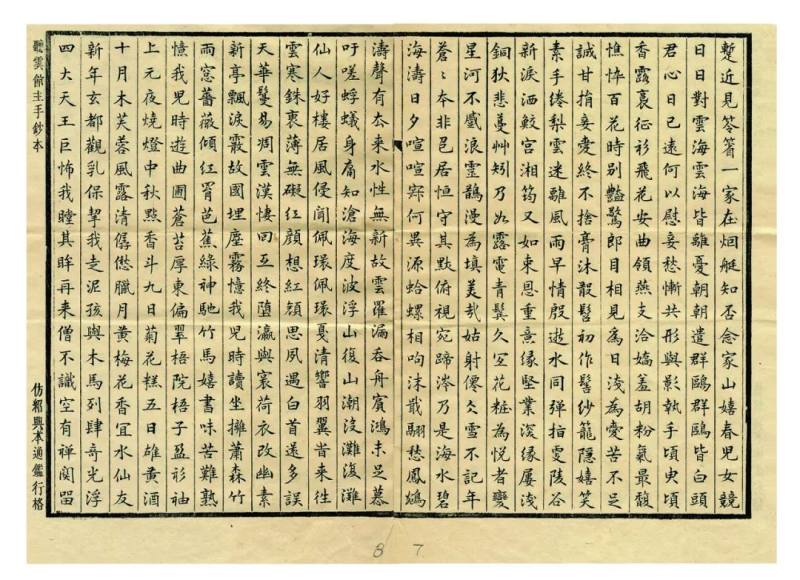 蹔近見笭箵一家在烟艇知否念家山嬉春兒女競
日日對雲海雲海皆離憂朝朝遣群鷗群鷗皆白頭
君心日已遠何以慰妾愁慚共形與影執手頃臾頃
香露裛征衫飛花安曲領燕支洽嬌羞胡粉氣最馥
憔悴百花時別豔驚郎目相見為日淺為愛苦不足
誠甘捐妾愛終不捨膏沐散髮初作髻紗籠隱嬉笑
素手倦梨雲迷離風雨早情殷逝水同彈指雯陵谷
新淚洒鮫宮湘筠又如東恩重意緣堅業深緣屢淺
銅狄悲蔓艸矧乃如露電青鬢久空花粧為悅者變
星河不感浪靈鵲漫為填美哉姑射僊仌雪不記年
蒼蒼本非邑居恒守其黙俯視宛蹄涔乃是海水碧
海濤日夕喧喧寂何異源蛤螺相呴沫戢翮愁鳳鴆
濤聲有去來水性無新故雲羅漏吞舟賓鴻未足慕
吁嗟蜉蟻身焉知滄海度波浮山復山潮沒灘復灘
仙人好樓居風侵閒佩環佩環戛清響羽翼昔來往
雲寒銖衣薄無礙紅顏想紅顏思夙遇白首送多誤
天華鬘易凋雲漢悽回互終墮瀛與寰荷衣改幽素
新亭飄淚霰故國埋塵霧憶我兒時讀坐擁蕭森竹
雨窓薔薇傾紅罥芭蕉綠神馳竹馬嬉書味苦難熟
憶我兒時遊曲圃蒼苔厚東偏翠梧院梧子盈衫袖
上元夜燒燈中秋點香斗九日菊花糕五日雄黃酒
十月木芙蓉風露清孱愁臘月黃梅花香宜水仙友
新年玄都觀乳保挈我走泥孩與木馬列肆奇光浮
四大天王巨怖我瞠其眸再來僧不識空有禪関留
聽雲館主手鈔本
仿紹興本通鑑行格
8 7